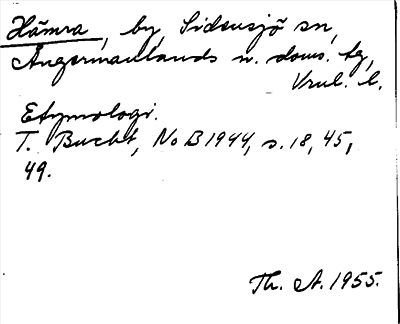 Hämra, by, Sidensjö sn,
Ångermanlands n. doms. tg,
Vnl. l.
Etymologi.
T. Bucht, NoB 1944, s. 18, 45,
49.
Th. A. 1955.